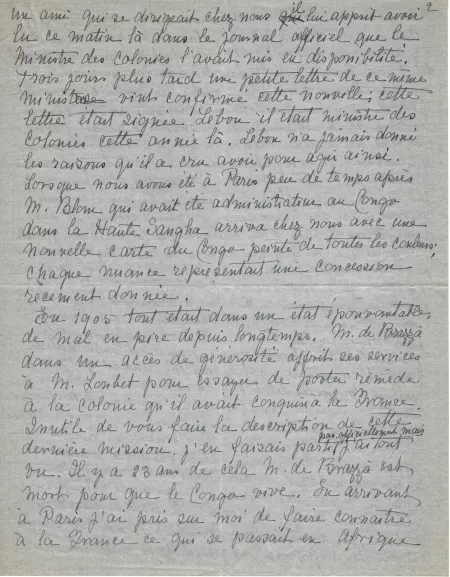 2
un ami qui se dirigeait chez nous il lui apprit avoir
lu ce matin là dans le journal officiel que le
Ministre des colonies l'avait mis en disponibilité.
Trois jours plus tard une petite lettre de ce même
ministre vint confirmé cette nouvelle; cette
lettre était signée Lebon il était ministre des
colonies cette année là. Lebon n'a jamais donné
les raisons qu'il a cru avoir pour agir ainsi.
Lorsque nous avons été à Paris peu de temps après
M. Blom qui avait été administrateur au Congo
dans la Haute Sangha arriva chez nous avec une
nouvelle carte du Congo peinte de toutes les couleurs;
chaque nuance représentait une concession
récement donnée.
En 1905 tout était dans un état épouvantable,
de mal en pire depuis longtemps. M. de Brazzà
dans un accès de générosité offrit ses services
à M. Loubet pour essayer de porter remède
à la colonie qu'il avait conquis à la France.
Inutile de vous faire la description de cette
pas officiellement mais
dernière mission. j'en faisais parti j'ai tout
vu. Il y a 23 ans de cela M. de Brazzà est
mort pour que le Congo vive. En arrivant
à Paris j'ai pris sur moi de faire connaître
à la France ce qui se passait en Afrique